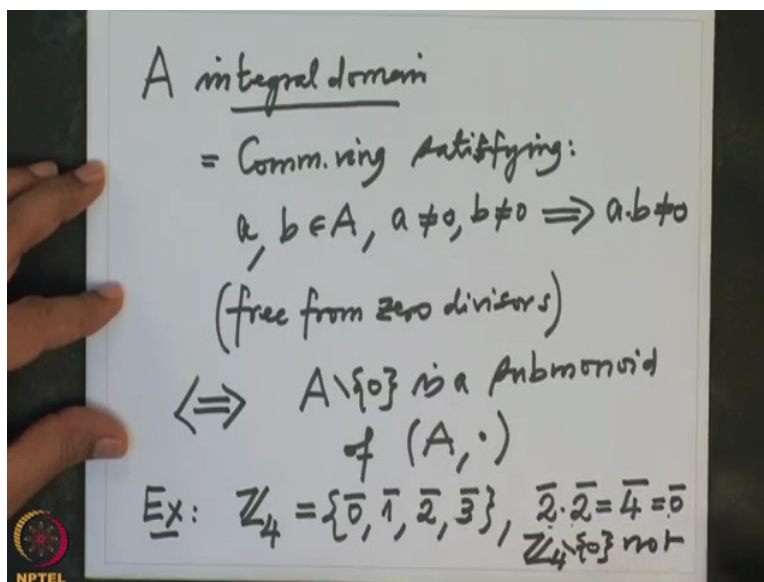 A integral domain
= Comm. ring satisfying:
a, b ∈ A, a ≠ 0, b ≠ 0 ⟹ a·b ≠ 0
(free from zero divisors)
⟺ A\{0} is a submonoid
of (A, ·)
Ex: ℤ₄ = {0̄, 1̄, 2̄, 3̄}, 2̄·2̄ = 4̄ = 0̄
ℤ₄\{0} not
NPTEL